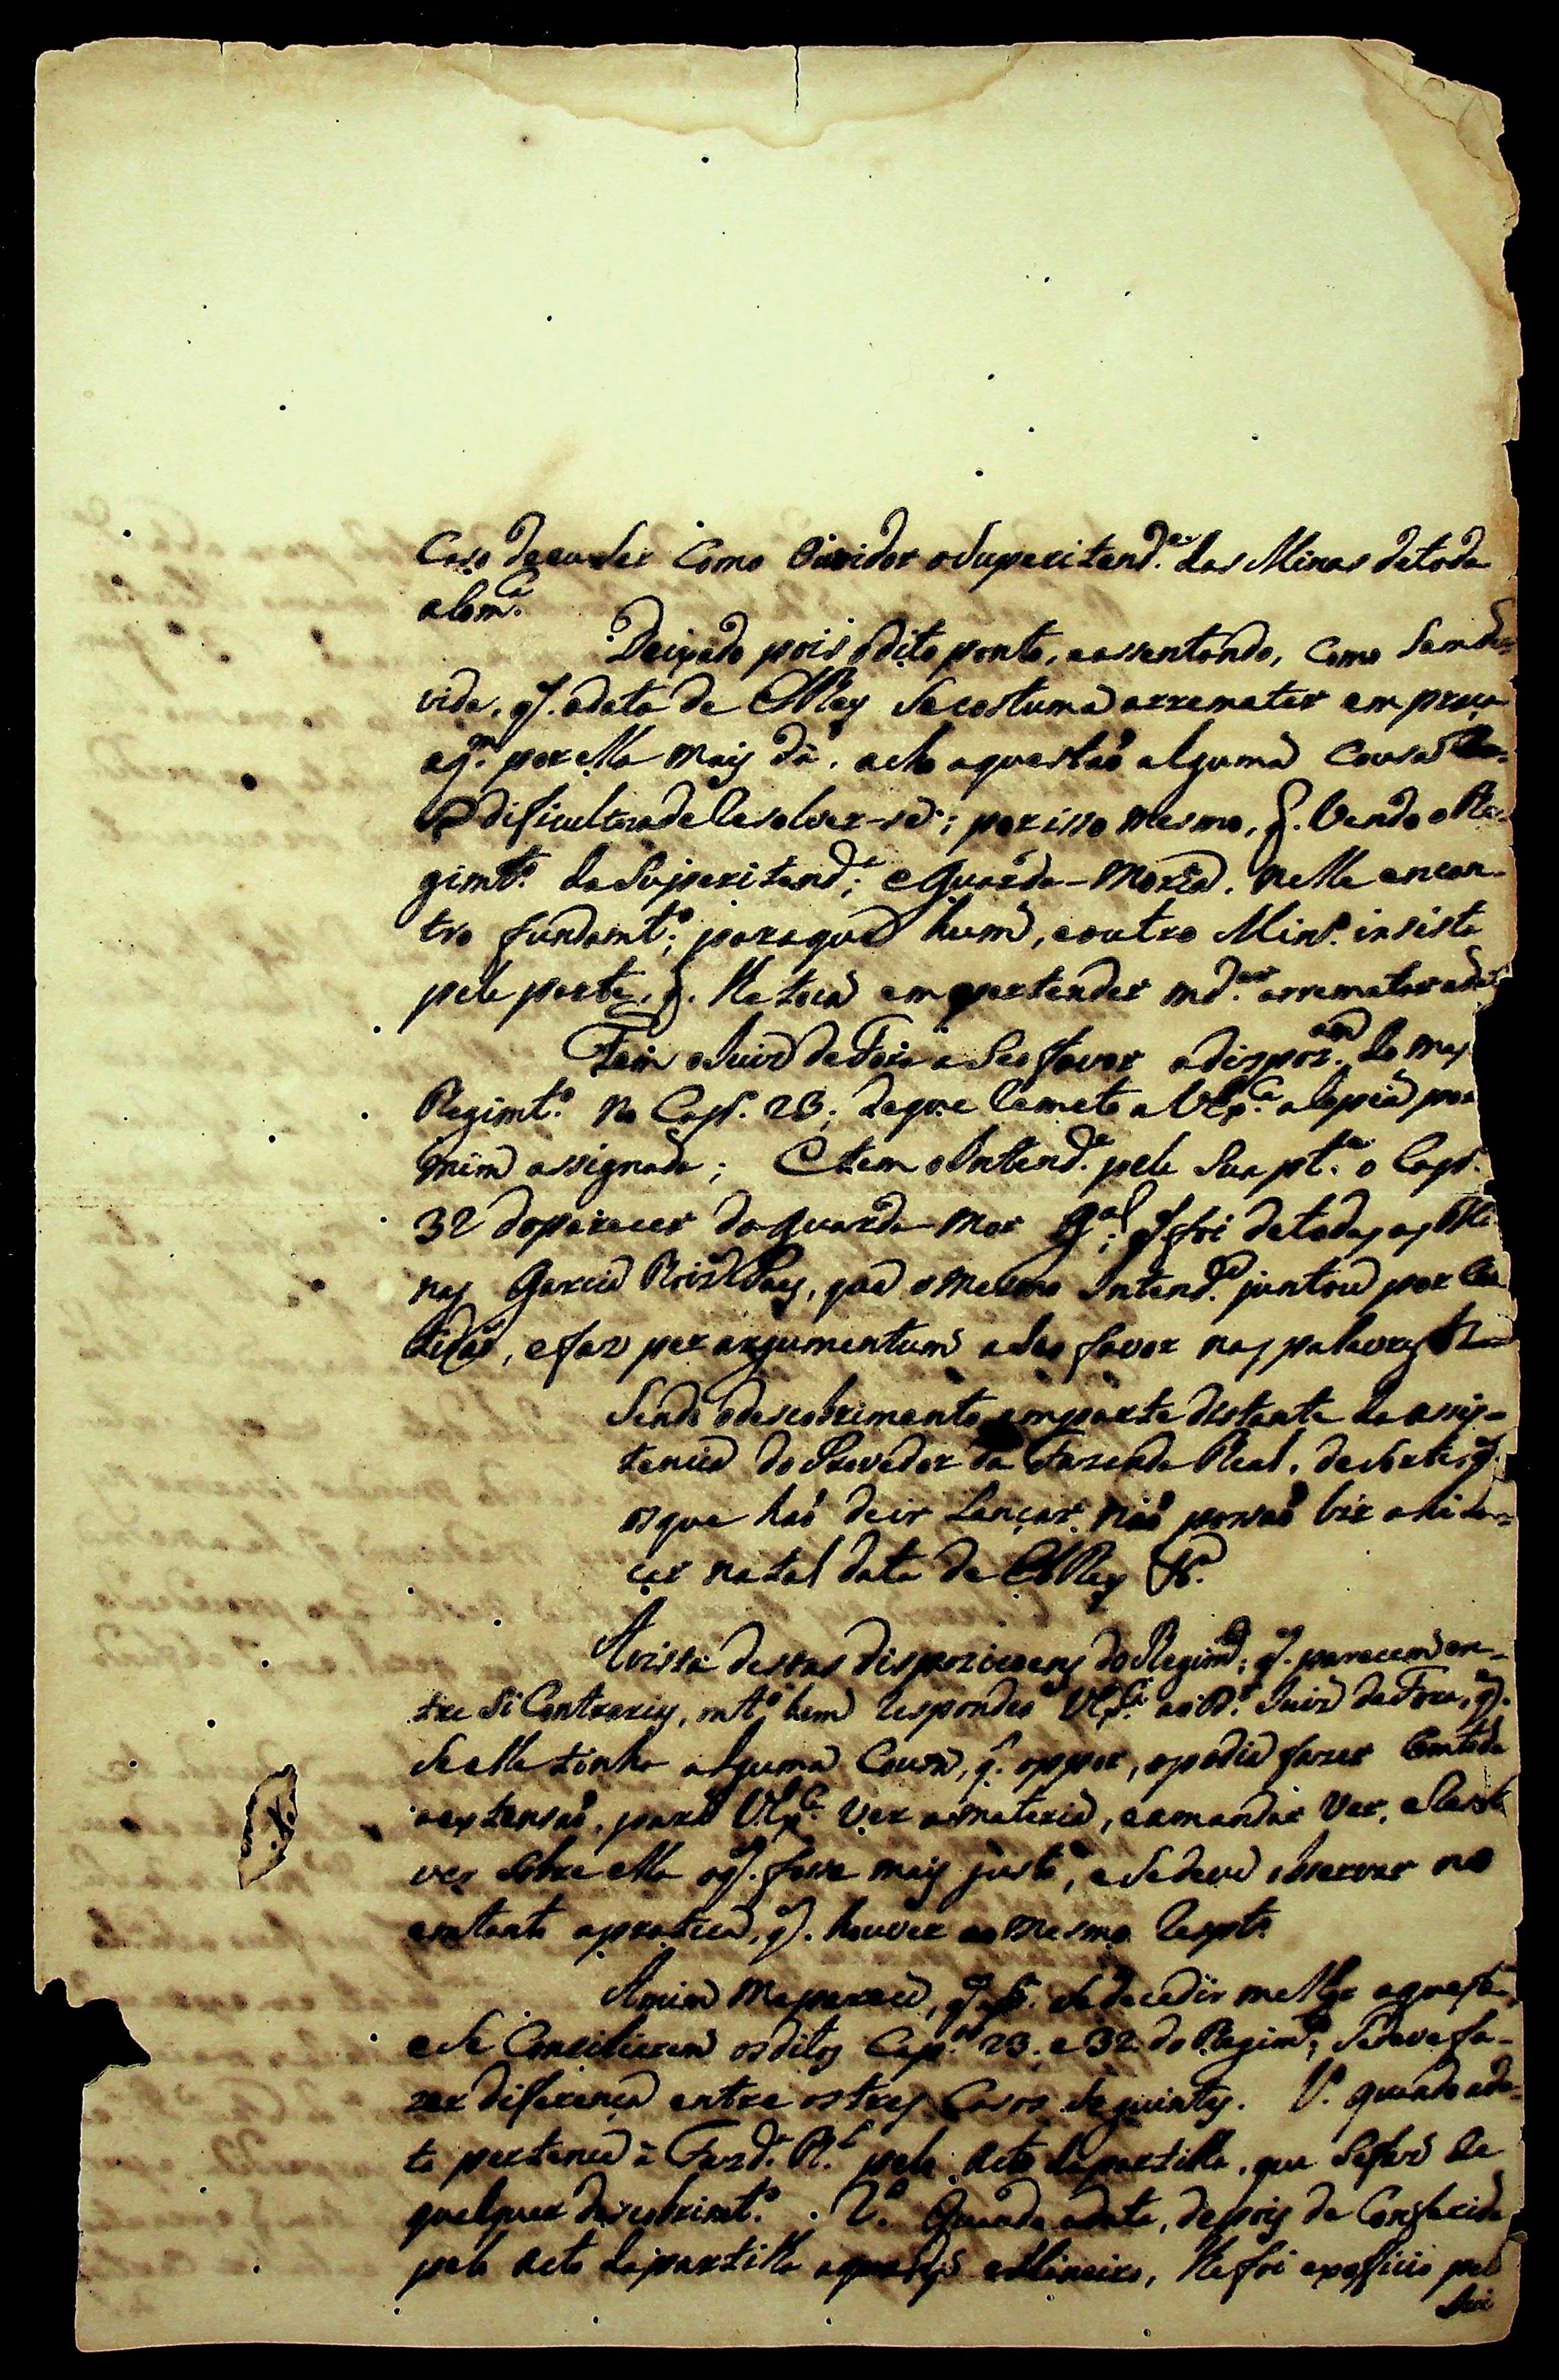 Caso de eu ser como Ouvidor o Superitend.e das Minas de toda
a Com.ca
Deixado pois o dito ponto, e assentando, como sem du-
vida, q̃. a data de ElRey se costuma arrematar em praça
a q.m por ella mais dá, acho a questaõ alguma cousa
dificultoza de Resolver-se; por isso mesmo, q̃. Vendo o Re-
gimt.o da Superitend.a e Guarda-Moria, nelle encon-
tro fundamt.o, para que hum, e outro Min.o insista
pela parte, q̃. lhe toca em pertender md.ar arrematar a da
Tem o Juiz de Fora a seo favor a dispoz.am do mes
Regimt.o no Cap. 23, de que Remeto a V.Ex.a a Copia por
mim assignada; E tem o Intend.e pela sua pt.e o Cap.
32 do parecer do guarda-mor G.al, q̃ foi de todas as Mi-
nas Garcia Roiz Paes, que o mesmo Intend.e juntou por Cer
tidaõ, e faz per argumentum a seo favor nas palavras
Sendo o descobrimento em parte distante da assis-
tencia do Provedor da Fazenda Real, de sorte, q̃.
os que haõ de ir Lançar, naõ possaõ hir a hi Lan-
çar na tal data de ElRey &.
Á vista destas dispoziçoens do Regim.to, q̃. parecem en-
tre si Contrarias, mt.o bem Respondeo V.Ex.a ao D.r Juiz de Fora, q̃.
se elle tinha alguma Couza, q̃. oppor, o podia fazer Com toda
a extensaõ, para V.Ex.a Ver a materia, e a mandar Ver, e Resol
ver sobre ella o q̃. fosse mais justo, e se deve observar no
emtanto a pratica, q̃. houver ao mesmo Respt.o
A mim me parece, q̃ p.a se decedir melhor a questaõ,
e se Conciliarem os ditos Cap.os 23, e 32 do Regim.to, se deve fa-
zer diferença entre os tres Casos seguintes. 1.o quando a da-
ta pertence á Fazd.a R.l pelo Acto da partilha, que se faz de
qualquer descobrimt.o. 2.o Quando a data, depois de Conhecida
pelo Acto da partilha a Mineiro, lhe foi ex officio pel